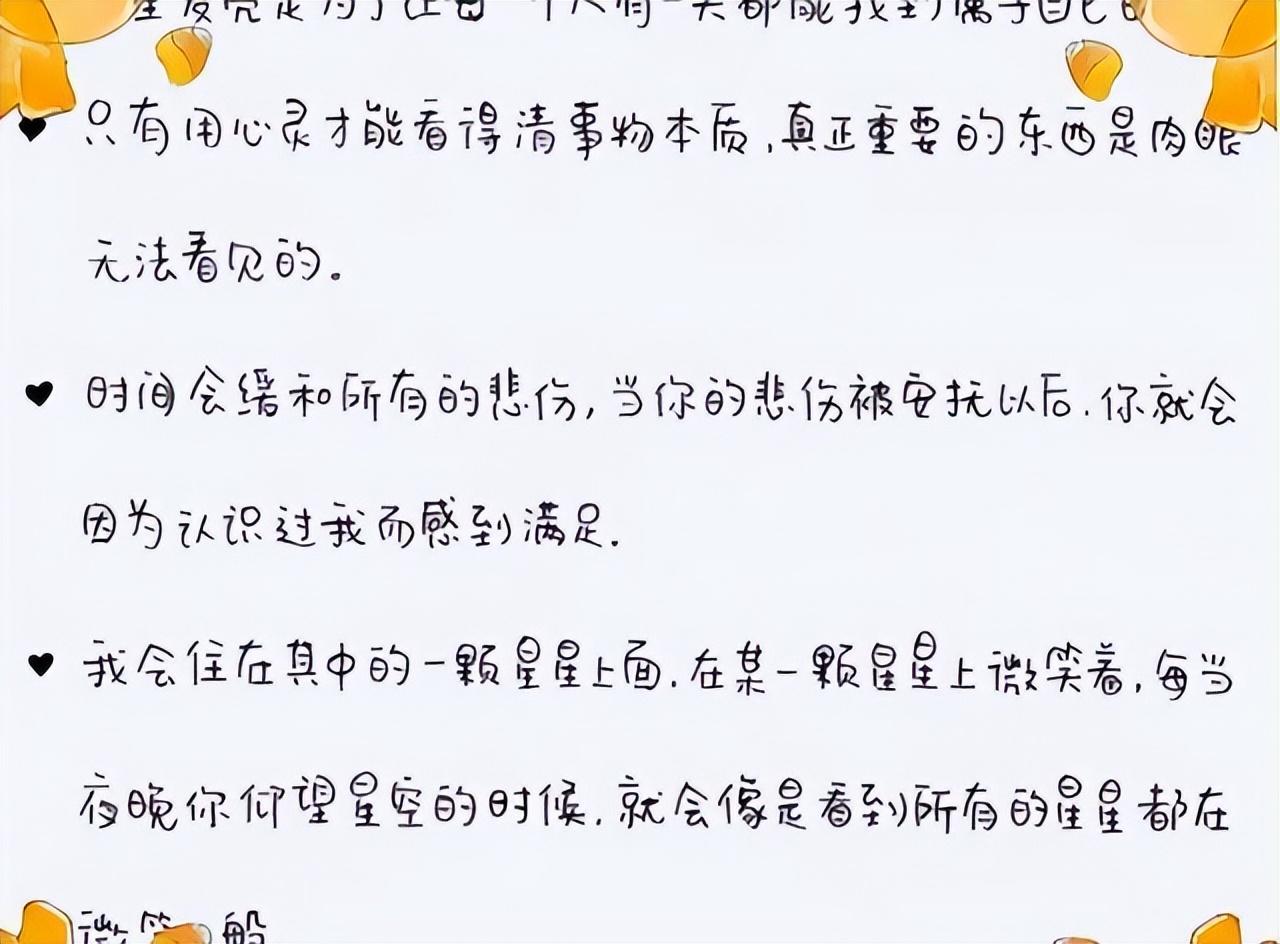 是为了让每一个人有一天都能找到属于自己的
只有用心灵才能看得清事物本质,真正重要的东西是肉眼
无法看见的。
时间会缓和所有的悲伤,当你的悲伤被安抚以后.你就会
因为认识过我而感到满足.
我会住在其中的一颗星星上面.在某一颗星星上微笑着,每当
夜晚你仰望星空的时候.就会像是看到所有的星星都在
微笑一般